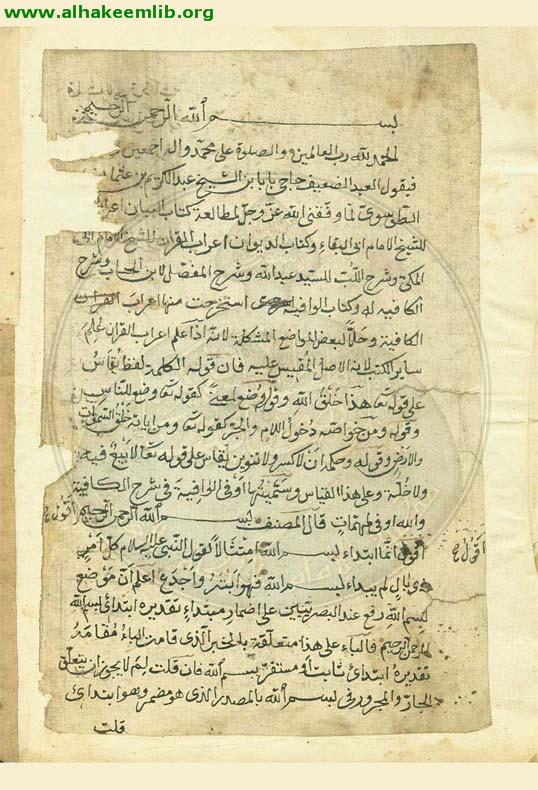 www.alhakeemlib.org
بسم الله الرحمن الرحيم
الحمد لله رب العالمين والصلوة على محمد واله اجمعين
فيقول العبد الضعيف حاجي بابا بن الشيخ عبد الكريم بن عثمان
الطوسوى لما وفقني الله عز وجل لمطالعة كتاب البيان اعراب
للشيخ الامام ابى البقاء وكتاب الديوان اعراب القران للشيخ الامام ابى
المكي وشرح اللب للسيد عبد الله وشرح المفصل لابن الحاجب وشرح
الكافيه له وكتاب الوافية استخرجت منها اعراب القران
الكافية وحلا لبعض المواضع المشكلة لانه اذا علم اعراب القران علم
ساير الكتب لانه الاصل المقيس عليه فان قوله الكلمة لفظ يقاس
على قوله تعا هذا خلق الله وقوله وضع لمعنى كقوله تعا وضع للناس
وقوله ومن خواصه دخول اللام والجر كقوله تعا ومن اياته خلق السموات
والارض وقوله وحكمه ان لا كسر ولا تنوين يقاس على قوله تعا لا بيع فيه
ولا خلة وعلى هذا القياس وسميتها اوفى الوافية في شرح الكافية
والله اوفى لمهمات قال المصنف بسم الله الرحمن الرحيم اقول ح
اقول انما ابتداء ببسم الله امتثالا لقول النبي عليه السلام كل امر
ذى بال لم يبداء ببسم الله فهو ابتر واجذع اعلم ان موضع
بسم الله رفع عند البصريين على اضمار مبتداء تقديره ابتدائ بسم الله
الرحمن الرحيم فالباء على هذا متعلقة بالخبر الذى قامت الباء مقامه
تقديره ابتدائ ثابت او مستقر ببسم الله فان قلت لم لا يجوز ان يتعلق
الجار والمجرور فى بسم الله بالمصدر الذى هو مضمر وهو ابتدائ
قلت
اقول ح